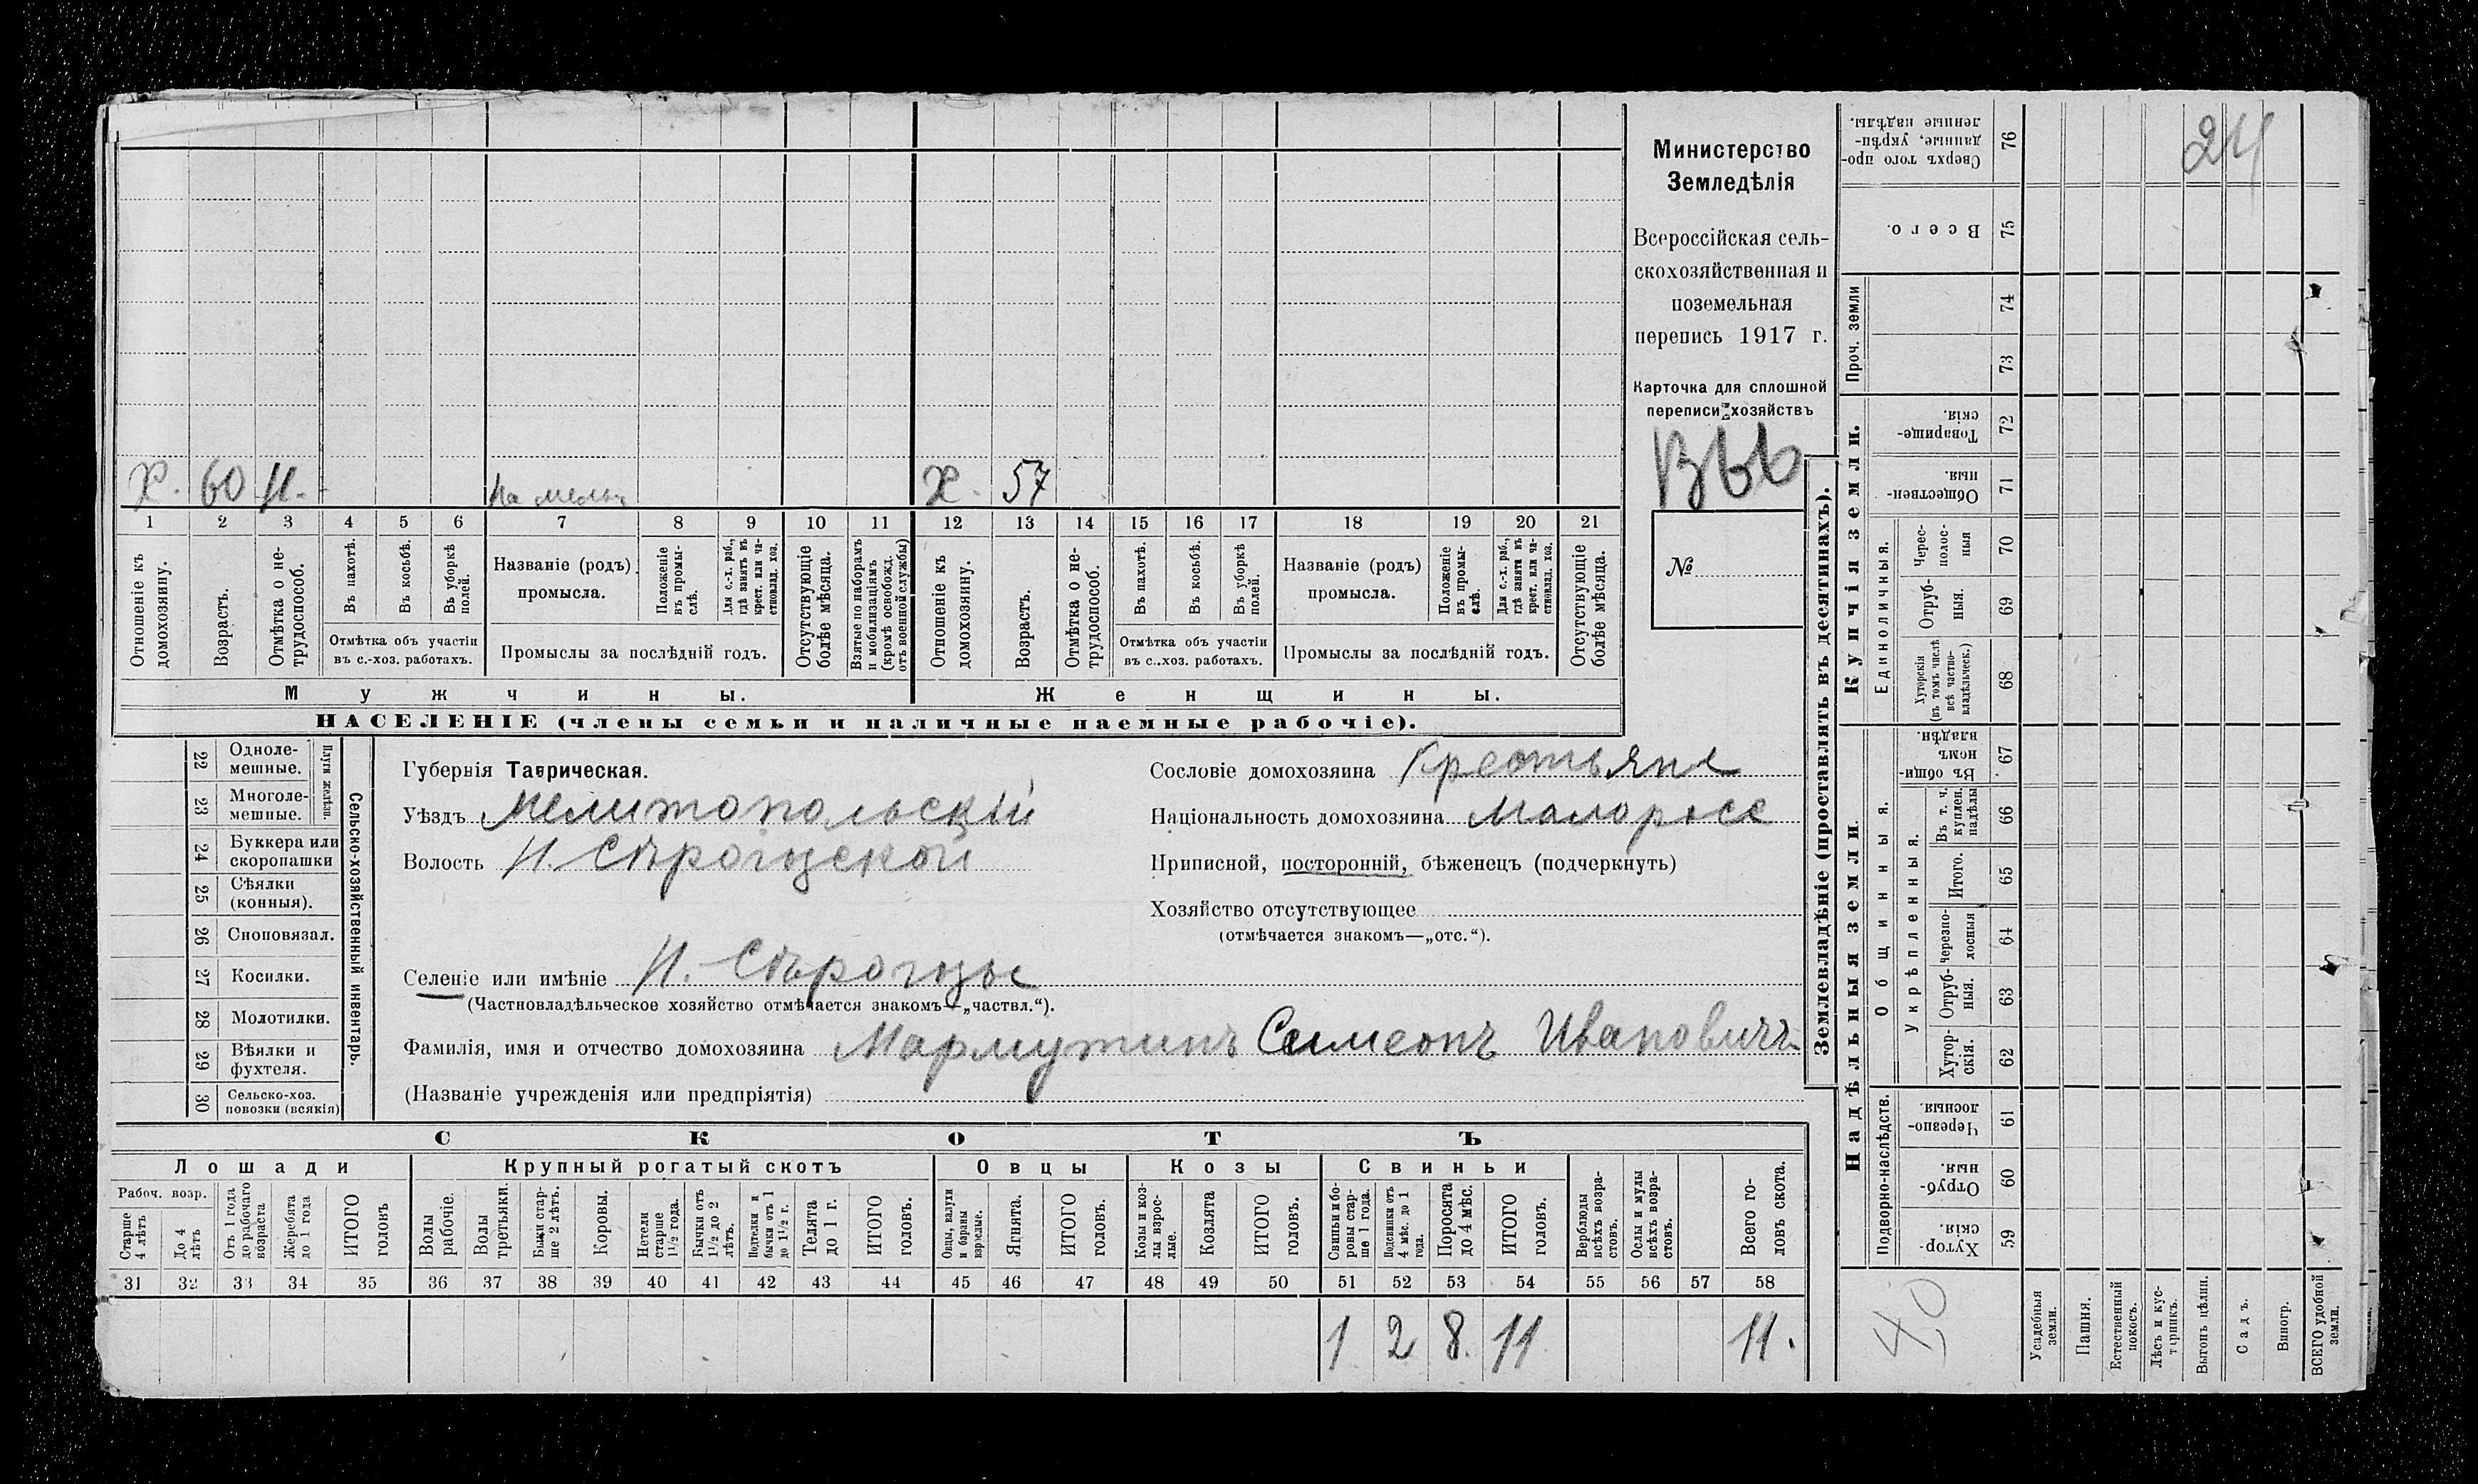 Министерство
Земледѣлія
Всероссійская сель-
скохозяйственная и
поземельная
перепись 1917 г.
Карточка для сплошной
переписи хозяйствъ
№
Х. 60 Н. На мельн Х. 57
1 2 3 4 5 6 7 8 9 10 11 12 13 14 15 16 17 18 19 20 21
Отношеніе къ домохозяину.
Возрастъ.
Отмѣтка о не-
трудоспособ.
Въ пахотѣ.
Въ косьбѣ.
Въ уборкѣ полей.
Отмѣтка объ участіи
въ с.-хоз. работахъ.
Названіе (родъ)
промысла.
Положеніе въ промы-
слѣ.
Для с.-х. раб.,
гдѣ занятъ въ
крест. или ча-
стновлад. хоз.
Промыслы за послѣдній годъ.
Отсутствующіе
болѣе мѣсяца.
Взятые по наборамъ
и мобилизаціямъ
(кромѣ освобожд.
отъ военной службы)
Отношеніе къ
домохозяину.
Возрастъ.
Отмѣтка о не-
трудоспособ.
Въ пахотѣ.
Въ косьбѣ.
Въ уборкѣ
полей.
Отмѣтка объ участіи
въ с.-хоз. работахъ.
Названіе (родъ)
промысла.
Положеніе
въ промы-
слѣ.
Для с.-х. раб.,
гдѣ заняты въ
крест. или ча-
стновлад. хоз.
Промыслы за послѣдній годъ.
Отсутствующіе
болѣе мѣсяца.
Мужчины. Женщины.
НАСЕЛЕНІЕ (члены семьи и наличные наемные рабочіе).
22 Одноле-
мешные.
23 Многоле-
мешные.
Плуги желѣзн.
24 Буккера или
скоропашки
25 Сѣялки
(конныя).
26 Сноповязал.
27 Косилки.
28 Молотилки.
29 Вѣялки и
фухтеля.
30 Сельско-хоз.
повозки (всякія)
Сельско-хозяйственный инвентарь.
Губернія Таврическая.
Уѣздъ Мелитопольскій
Волость Н. Сѣрогозской
Селеніе или имѣніе Н. - Сѣрогозы
(Частновладѣльческое хозяйство отмѣчается знакомъ—„частвл.“).
Фамилія, имя и отчество домохозяина Мармутинъ Симеонъ Ивановичъ
(Названіе учрежденія или предпріятія)
Сословіе домохозяина Крестьяне
Національность домохозяина Малороссъ
Приписной, посторонній, бѣженецъ (подчеркнуть)
Хозяйство отсутствующее
(отмѣчается знакомъ—„отс.“).
СКОТЪ
Лошади Крупный рогатый скотъ Овцы Козы Свиньи
Рабоч. возр.
Старше
4 лѣтъ
До 4
лѣтъ
Отъ 1 года
до рабочаго
возраста
Жеребята
до 1 года
ИТОГО
головъ
Волы
рабочіе.
Волы
третьяки.
Быки стар-
ше 2 лѣтъ.
Коровы.
Нетели
старше
1½ года.
Бычки отъ
1½ до 2
лѣтъ.
Подтелки и
бычки отъ 1
до 1½ г.
Телята
до 1 г.
ИТОГО
головъ.
Овцы, валухи
и бараны
взрослые.
Ягнята.
ИТОГО
головъ.
Козы и коз-
лы взрос-
лые.
Козлята
ИТОГО
головъ.
Свиньи и бо-
ровы стар-
ше 1 года.
Подсвинки отъ
4 мѣс. до 1
года.
Поросята
до 4 мѣс.
ИТОГО
головъ.
Верблюды
всѣхъ возра-
стовъ.
Ослы и мулы
всѣхъ возра-
стовъ.
Всего го-
ловъ скота.
31 32 33 34 35 36 37 38 39 40 41 42 43 44 45 46 47 48 49 50 51 52 53 54 55 56 57 58
1 2 8. 11 11.
Землевладѣніе (проставлять въ десятинахъ).
24
Сверхъ того про-
данные, укрѣп-
ленные надѣлы.
76
Всего.
75
Проч. земли
74
73
Купчія земли.
Товарище-
скія.
72
Обществен-
ныя.
71
Единоличныя.
Черес-
полос-
ныя
70
Отруб-
ныя.
69
Хуторскія
(въ томъ числѣ
всѣ частно-
владѣльческ.)
68
Надѣльныя земли
Общинныя.
Въ общин-
номъ
владѣн.
67
Укрѣпленныя.
Въ т. ч.
куплен.
надѣлы
66
Итого.
65
Черезпо-
лосныя
64
Отруб-
ныя.
63
Хутор-
скія.
62
Подворно-наслѣдств.
Черезпо-
лосныя.
61
Отруб-
ныя.
60
Хутор-
скія.
59
40
Усадебныя
земли.
Пашня.
Естественный
покосъ.
Лѣсъ и кус-
тарникъ.
Выгонъ цѣлин.
Садъ.
Виногр.
ВСЕГО удобной
земли.